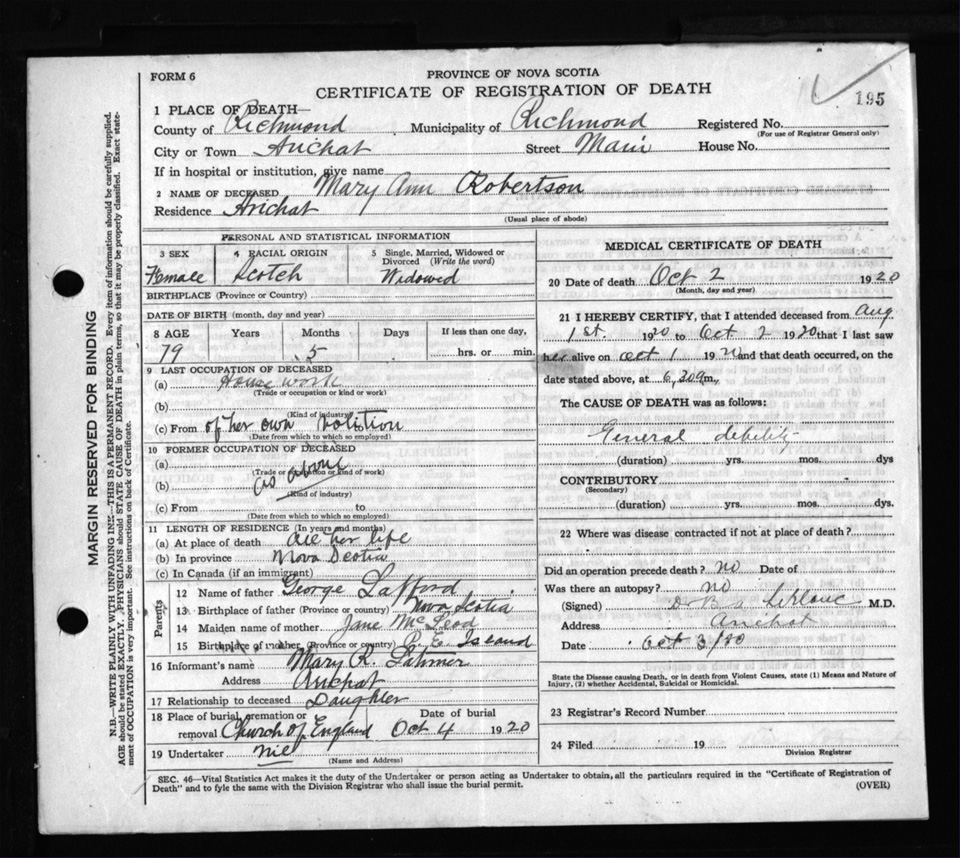 FORM 6
PROVINCE OF NOVA SCOTIA
CERTIFICATE OF REGISTRATION OF DEATH
195
1 PLACE OF DEATH—
County of Richmond Municipality of Richmond Registered No.
(For use of Registrar General only)
City or Town Arichat Street Main House No.
If in hospital or institution, give name
2 NAME OF DECEASED Mary Ann Robertson
Residence Arichat
(Usual place of abode)
PERSONAL AND STATISTICAL INFORMATION
3 SEX 4 RACIAL ORIGIN 5 Single, Married, Widowed or Divorced (Write the word)
Female Scotch Widowed
BIRTHPLACE (Province or Country)
DATE OF BIRTH (month, day and year)
8 AGE Years Months Days If less than one day,
79 5 hrs. or min.
9 LAST OCCUPATION OF DECEASED
(a) House work
(Trade or occupation or kind or work)
(b)
(Kind of industry)
(c) From of her own volition
(Date from which to which so employed)
10 FORMER OCCUPATION OF DECEASED
(a)
(Trade or occupation or kind of work)
(b) as above
(Kind of industry)
(c) From to
(Date from which to which so employed)
11 LENGTH OF RESIDENCE (In years and months)
(a) At place of death all her life
(b) In province Nova Scotia
(c) In Canada (if an immigrant)
Parents
12 Name of father George Lafford
13 Birthplace of father (Province or country) Nova Scotia
14 Maiden name of mother Jane McLeod
15 Birthplace of mother (Province or country) P. E. Island
16 Informant's name Mary R.
Address Arichat
17 Relationship to deceased Daughter
18 Place of burial, cremation or removal Church of England Date of burial Oct 4 1920
19 Undertaker nil
(Name and Address)
MEDICAL CERTIFICATE OF DEATH
20 Date of death Oct 2 1920
(Month, day and year)
21 I HEREBY CERTIFY, that I attended deceased from Aug
1st. 1920 to Oct 2 1920 that I last saw
her alive on Oct 1 1920 and that death occurred, on the
date stated above, at 6,30 m.
The CAUSE OF DEATH was as follows:
General debility
(duration) yrs. mos. dys
CONTRIBUTORY
(Secondary)
(duration) yrs. mos. dys.
22 Where was disease contracted if not at place of death?
Did an operation precede death? no Date of
Was there an autopsy? no
(Signed) LeBlanc M.D.
Address Arichat
Date Oct 3/20
State the Disease causing Death, or in death from Violent Causes, state (1) Means and Nature of
Injury, (2) whether Accidental, Suicidal or Homicidal.
23 Registrar's Record Number
24 Filed 19
Division Registrar
SEC. 46—Vital Statistics Act makes it the duty of the Undertaker or person acting as Undertaker to obtain, all the particulars required in the "Certificate of Registration of
Death" and to fyle the same with the Division Registrar who shall issue the burial permit.
(OVER)
MARGIN RESERVED FOR BINDING
N.B.—WRITE PLAINLY WITH UNFADING INK—THIS IS A PERMANENT RECORD. Every item of information should be carefully supplied.
AGE should be stated EXACTLY. PHYSICIANS should STATE CAUSE OF DEATH in plain terms, so that it may be properly classified. Exact state-
ment of OCCUPATION is very important. See instructions on back of Certificate.